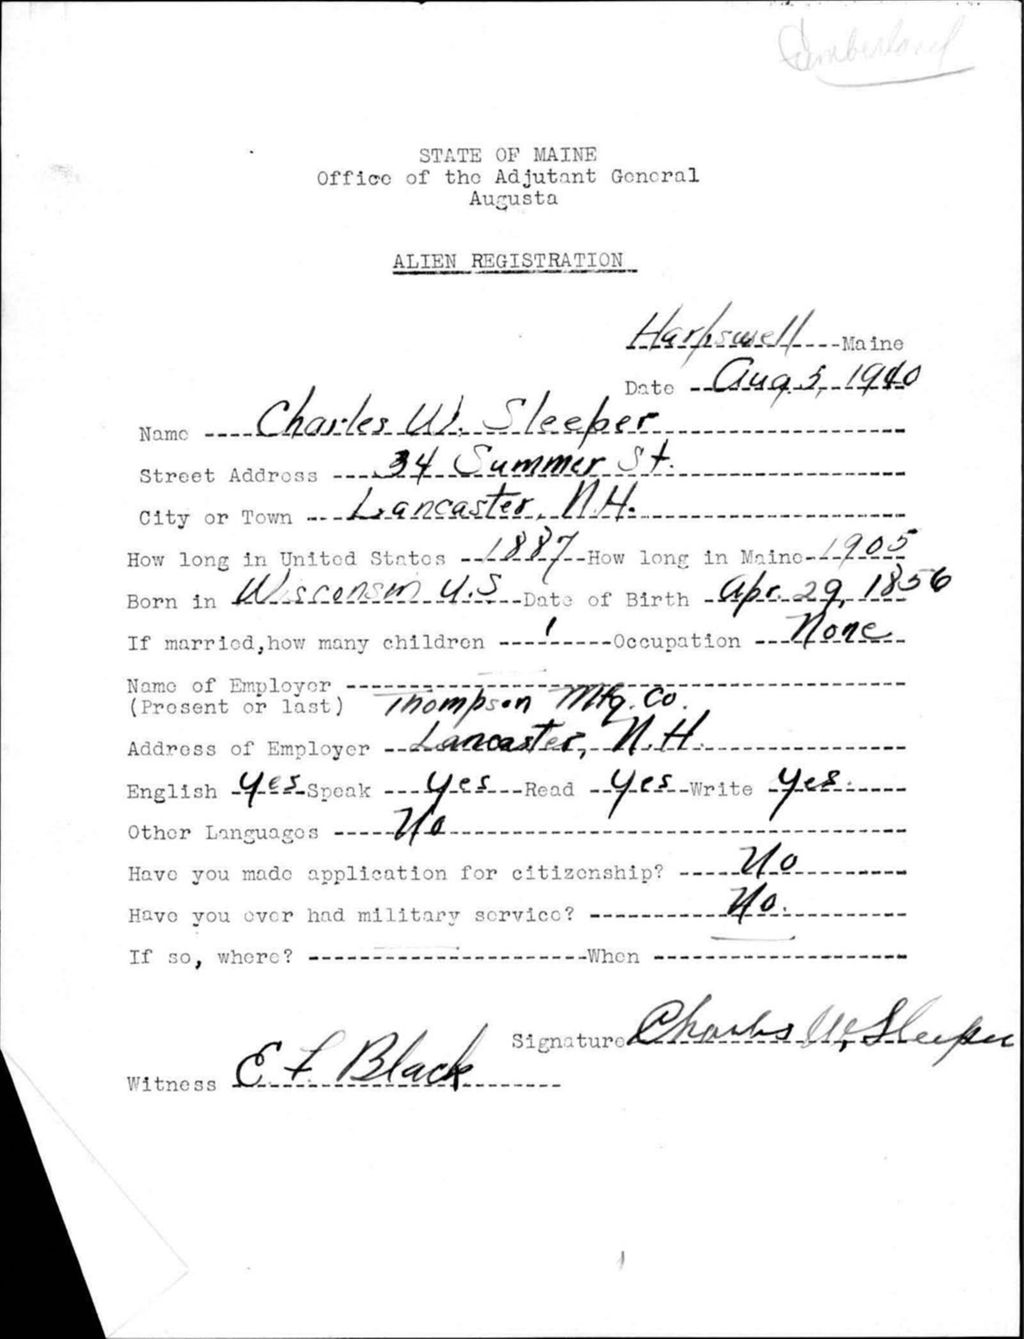 Cumberland
STATE OF MAINE
Office of the Adjutant General
Augusta
ALIEN REGISTRATION
Harpswell Maine
Date Aug. 5, 1940
Name Charles W. Sleeper
Street Address 34 Summer St.
City or Town Lancaster, N.H.
How long in United States 1887 How long in Maine 1905
Born in Wisconsin U.S Date of Birth Apr. 29, 1856
If married, how many children 1 Occupation None
Name of Employer
(Present or last) Thompson Mfg. Co.
Address of Employer Lancaster, N.H.
English Yes Speak Yes Read Yes Write Yes.
Other Languages No
Have you made application for citizenship? No
Have you ever had military service? No.
If so, where? When
Signature Charles W. Sleeper
Witness E F Black